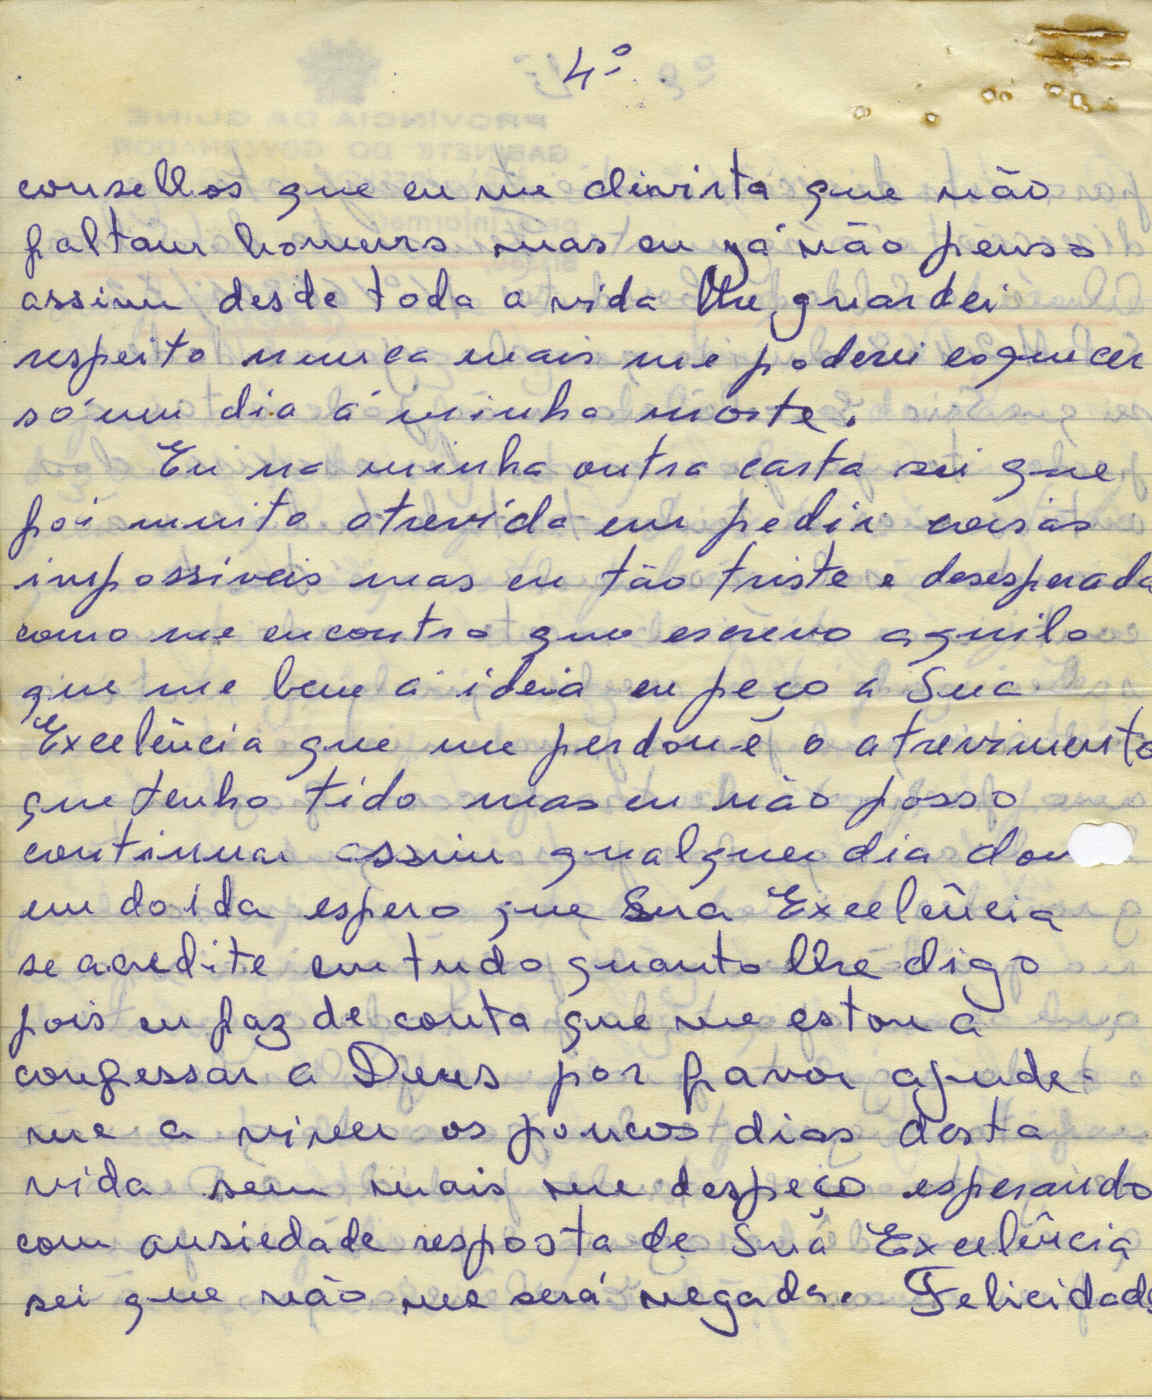 4º
consellos que eu me divirta que não
faltam homens mas eu já não penso
assim desde toda a vida lhe guardei
respeito nunca mais me poderei esquecer
só um dia á minha morte.
Eu na minha outra carta sei que
foi muito atrevida em pedir coisas
impossiveis mas eu tão triste e desesperada
como me encontro que escrevo aquilo
que me bem á ideia eu peço a Sua
Excelência que me perdou-é o atrevimento
que tenho tido mas eu não posso
continuar assim qualquer dia dou
em doida espero que Sua Excelência
se acredite em tudo quanto lhe digo
pois eu faz de conta que me estou a
confessar a Deus por favor ajude-
me a viver os poucos dias desta
vida sem mais me despeço esperando
com ansiedade resposta de Suà Excelência
sei que não me será negada. Felicidade
PROVÍNCIA DA GUINÉ
GABINETE DO GOVERNADOR